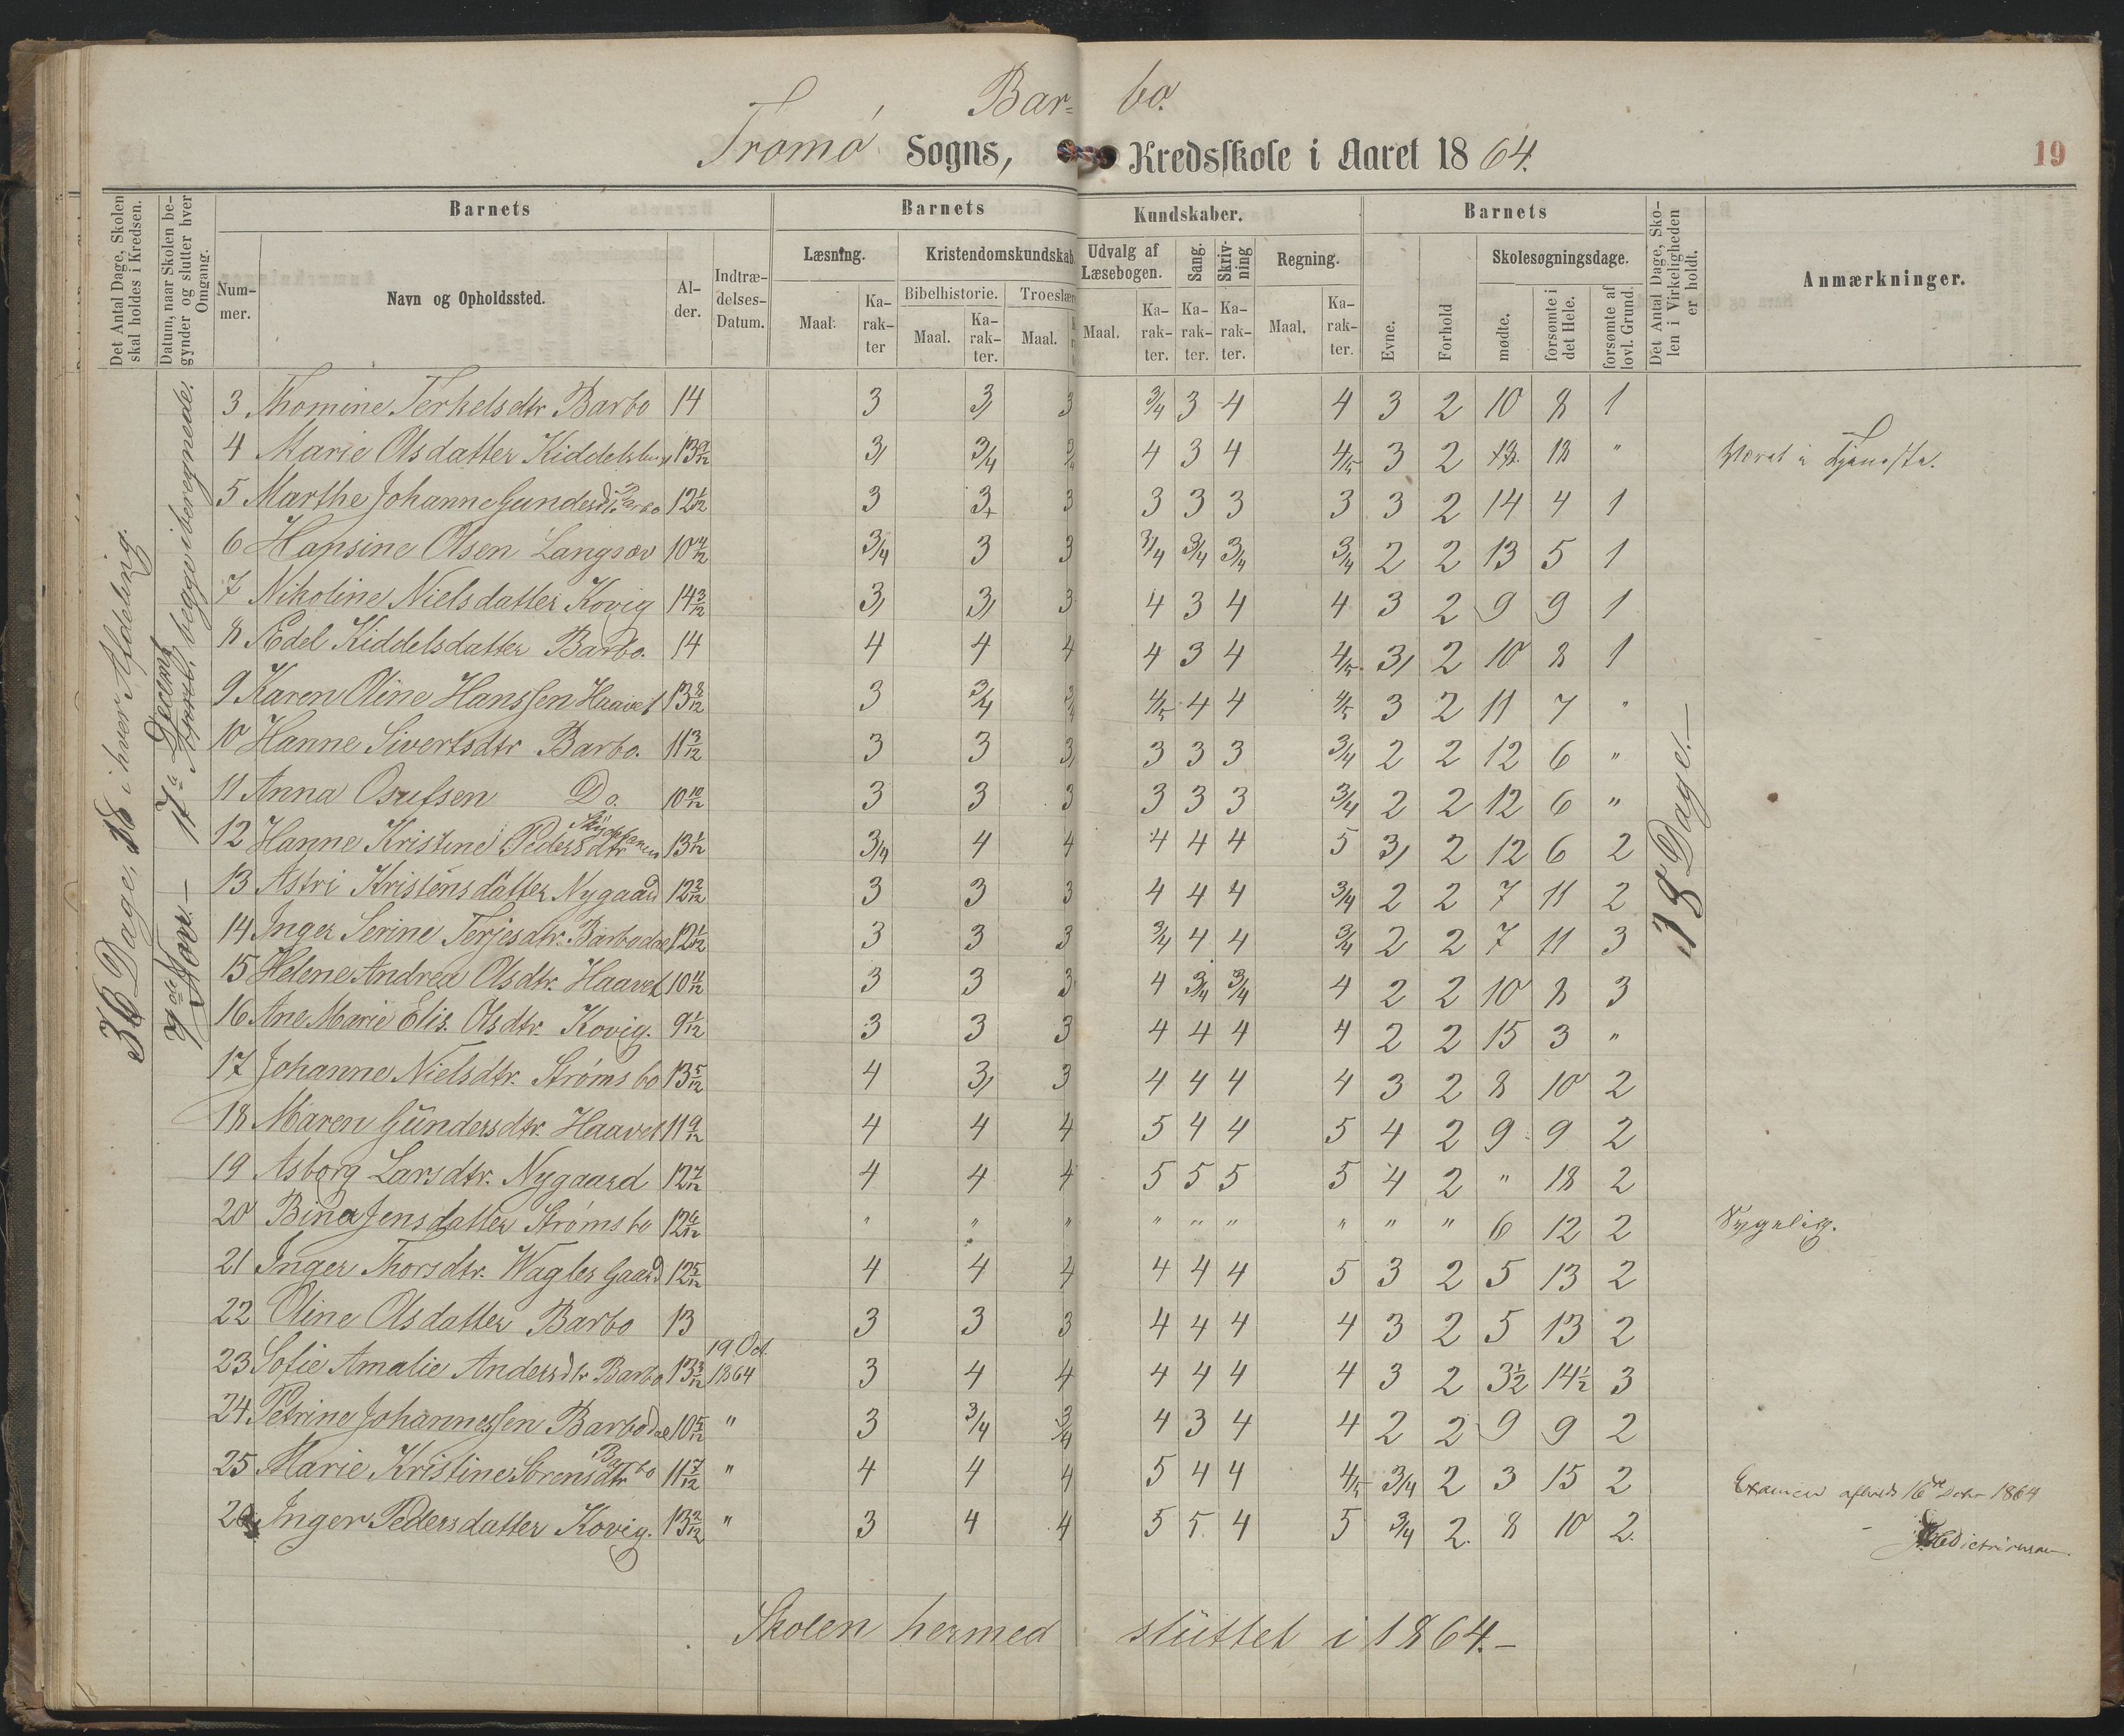 Bar- bo.
Tromø Sogns, Kredsskole i Aaret 1864.
19
Det Antal Dage, Skolen skal holdes i Kredsen.
Datum, naar Skolen begynder og slutter hver Omgang.
Barnets
Nummer.
Navn og Opholdssted.
Alder.
Indtrædelses-Datum.
Barnets Kundskaber.
Læsning.
Maal.
Karakter
Kristendomskundskab.
Bibelhistorie.
Maal.
Karakter.
Troeslære
Maal.
Udvalg af Læsebogen.
Maal.
Karakter.
Sang.
Karakter.
Skrivning
Karakter.
Regning.
Maal.
Karakter.
Barnets
Evne.
Forhold
Skolesøgningsdage.
mødte.
forsømte i det Hele.
forsømte af lovl. Grund.
Det Antal Dage, Skolen i Virkeligheden er holdt.
Anmærkninger.
36 Dage, 18 i hver Afdeling.
7de Novr. — 17de Decemb. begge iberegnede.
18 Dage.—
3 Thomine Terkelsdtr Barbo 14 3 3/ 3 3/4 3 4 4 3 2 10 8 1
4 Marie Olsdatter 13 9/12 3/ 3/4 3/4 4 3 4 4/5 3 2 18 " Været i Tjeneste.
5 Marthe Johanne Gundersdtr Barbo 12 1/12 3 3+ 3 3 3 3 3 3 2 14 4 1
6 Hansine Olsen Langsæv 10 3/4 3 3 3/4 3/4 3/4 3/4 2 2 13 5 1
7 Nikoline Nielsdatter Kovig 14 3/12 3/ 3/ 3 4 3 4 4 3 2 9 9 1
8 Ædel Kiddelsdatter Barbo. 14 4 4 4 4 3 4 4/5 3/ 2 10 8 1
9 Karen Oline Hanssen Haavet 13 8/12 3 3/4 3/4 4/5 4 4 4/5 3 2 11 7 "
10 Hanne Sivertsdtr Barbo. 11 3/12 3 3 3/ 3 3 3 3/4 2 2 12 6 "
11 Anna Osufsen Do. 10 10/12 3 3 3 3 3 3 3/4 2 2 12 6 "
12 Hanne Kristine Pedersdtr 13 1/12 3/4 4 4 4 4 4 5 3/ 2 12 6 2
13 Astri Kristensdatter Nygaard 12 2/12 3 3 3 4 4 4 3/4 2 2 7 11 2
14 Inger Serine Terjesdtr. Barbodal 12 1/12 3 3 3 3/4 4 4 3/4 2 2 7 11 3
15 Helene Andrea Olsdtr. Haavet 10 11/12 3 3 3 4 3/4 3/4 4 2 2 10 8 3
16 Ane Marie Elis. Olsdtr. Kovig. 9 1/12 3 3 3 4 4 4 4 2 2 15 3 "
17 Johanne Nielsdtr. Strømsbo 13 5/12 4 3/ 3 4 4 4 4 3 2 8 10 2
18 Maren Gundersdtr. Haavet 11 9/12 4 4 4 5 4 4 5 4 2 9 9 2
19 Asborg Larsdtr. Nygaard 12 7/12 4 4 4 5 5 5 5 4 2 " 18 2
20 Bina Jensdatter Strømsbo 12 6/12 " " " " " " " " " 6 12 2 Sygelig.
21 Inger Thorsdtr. Waglesgaard 12 5/12 4 4 4 4 4 4 5 3 2 5 13 2
22 Oline Olsdatter Barbo 13 3 3 3 4 4 4 4 3 2 5 13 2
23 Sofie Amalie Andersdtr Barbo 13 3/12 19 Oct. 1864 3 4 4 4 4 4 4 3 2 3½ 14½ 3
24 Petrine Johannessen Barbodal 10 5/12 " 3 3/4 3/4 4 3 4 4 2 2 9 9 2
25 Marie Kristine Sørensdtr Barbo 11 7/12 " 4 4 4 5 4 4 4/5 3/4 2 3 15 2 Examen afholdt 16de Decbr 1864
26 Inger Pedersdatter Kovig. 13 2/12 " 3 4 4 5 5 4 5 3/4 2 8 10 2.
Skolen hermed sluttet i 1864.—